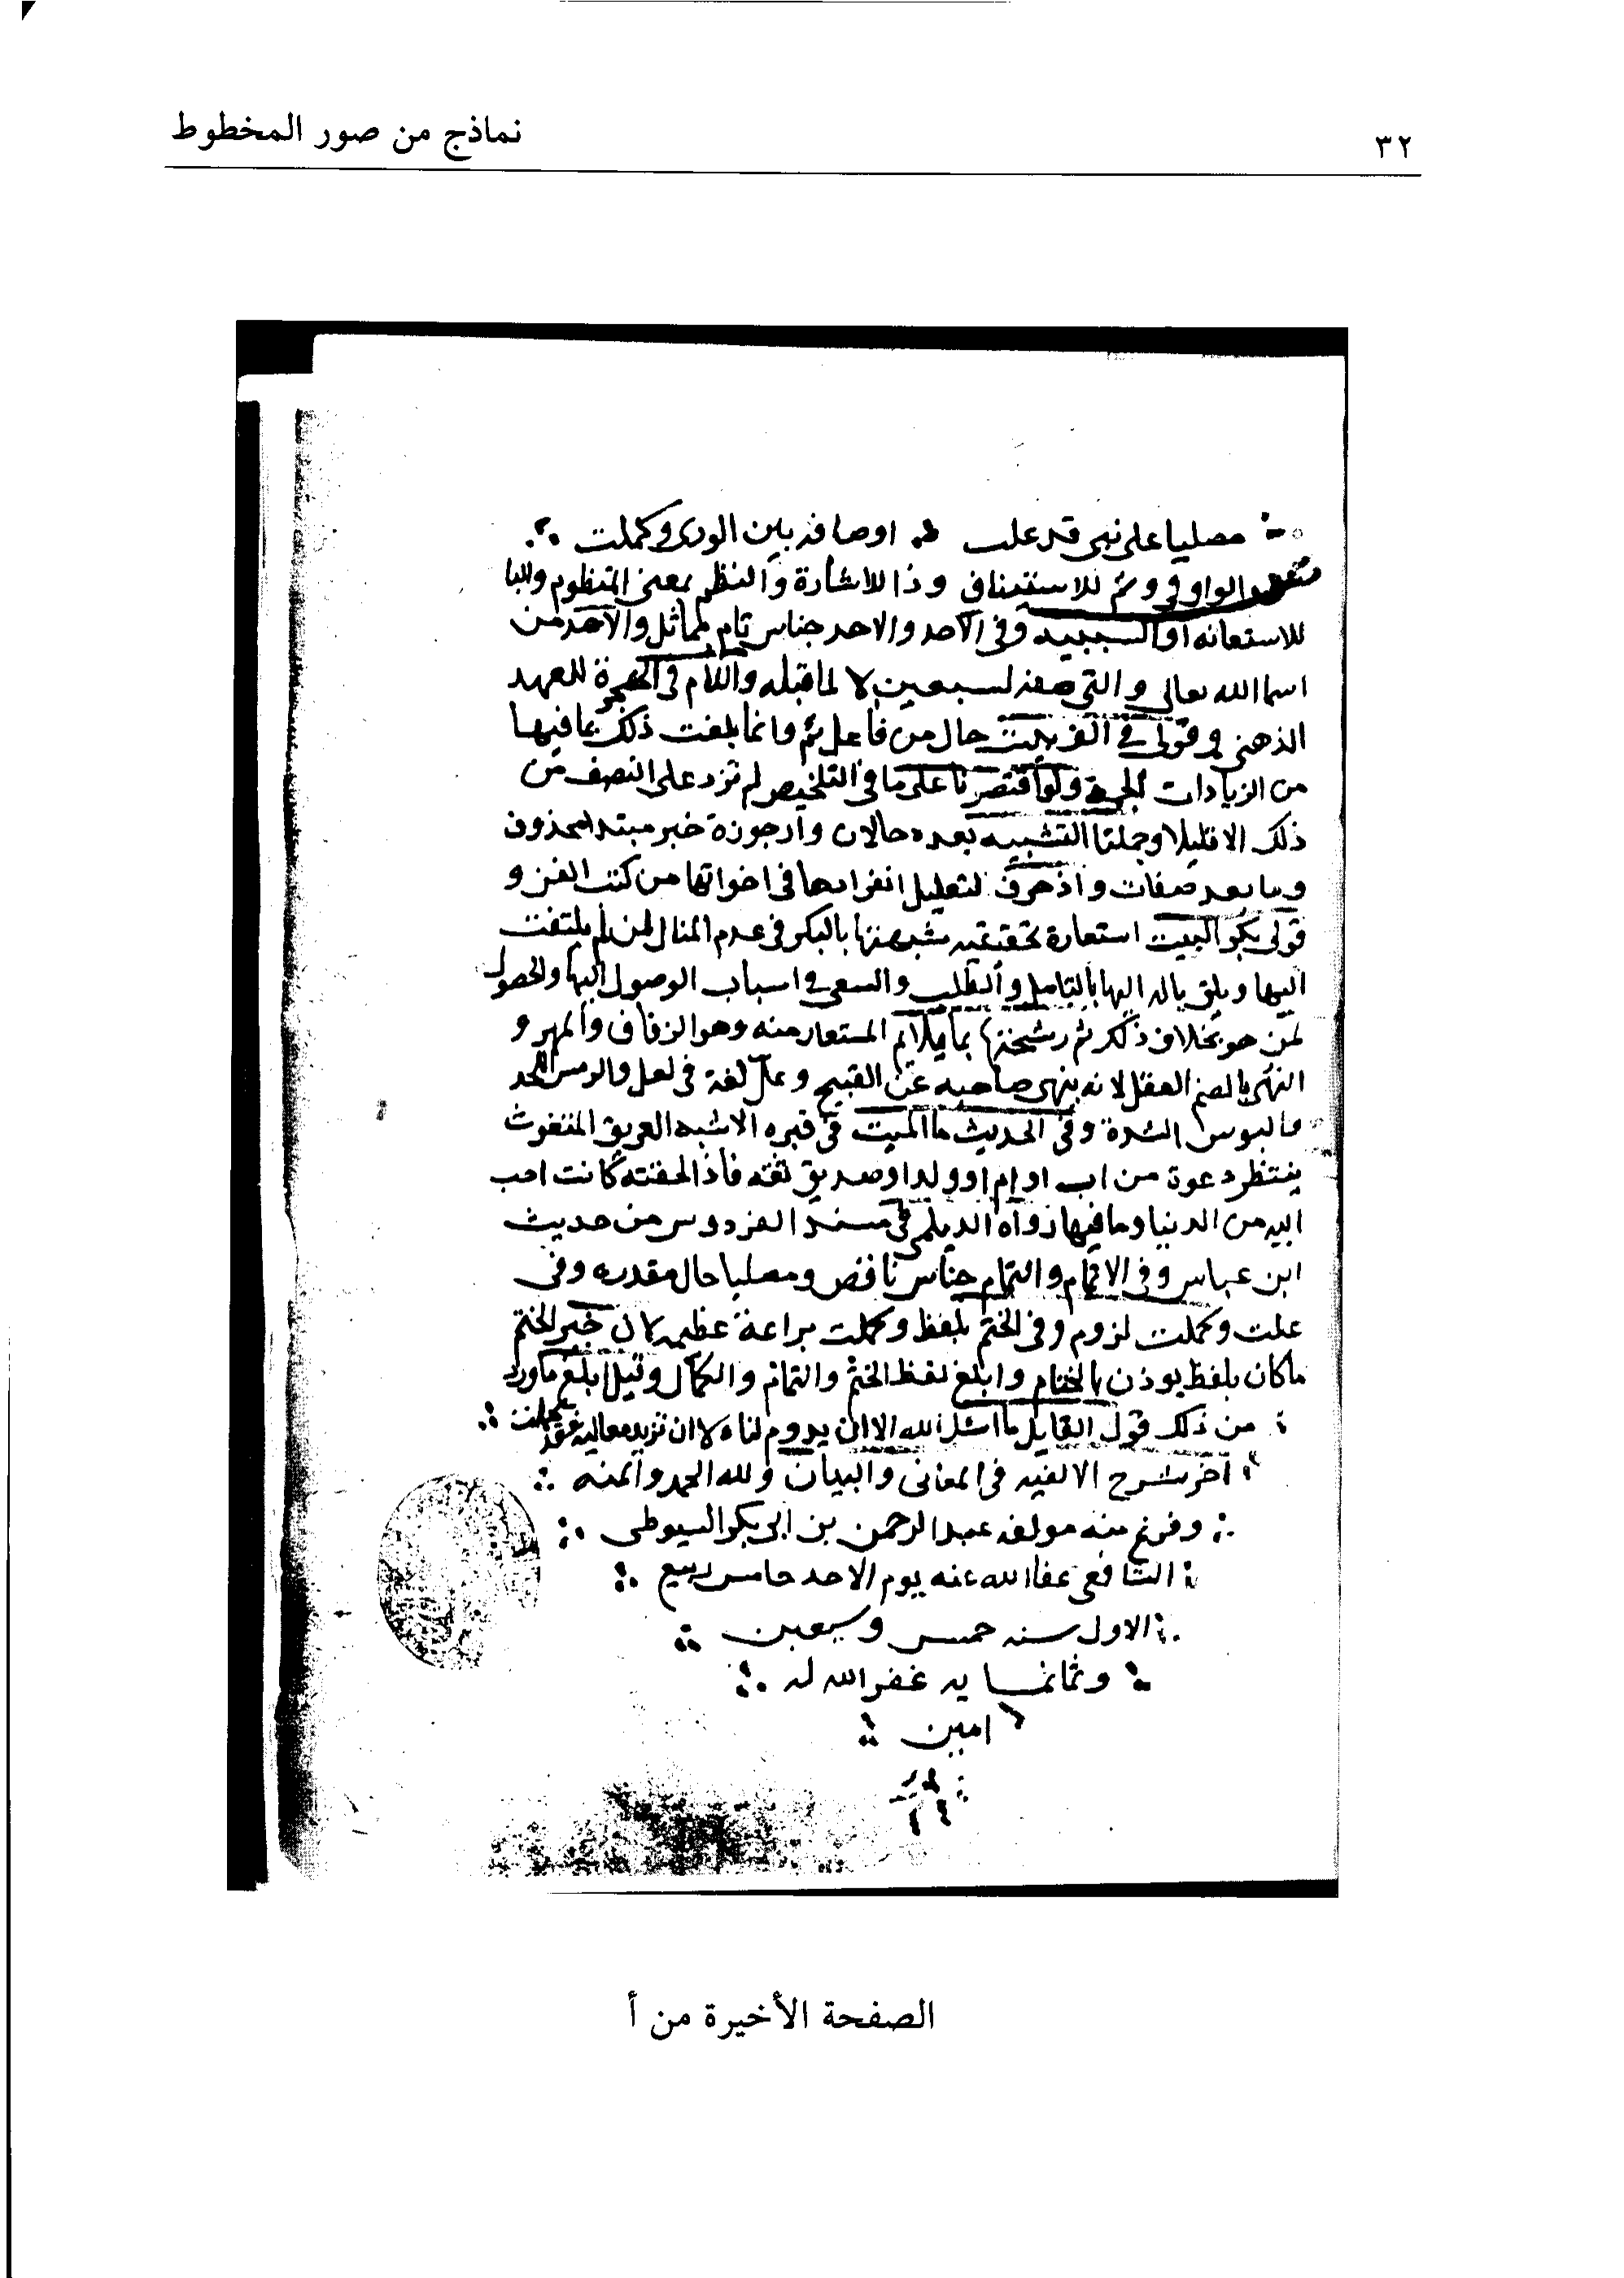 نماذج من صور المخطوط
٣٢
مصليا على نبي قد علت اوصافه بين الورى وكملت
الواو في وثم للاستيناف وذا للاشارة والنظم بمعنى المنظوم والبا
للاستعانه او السببيه وفي الآحد والاحد جناس تام لمماثل والآحد من
اسما الله تعالى والتي صفه لسبعين لا لما قبله واللام في الهجرة للعهد
الذهني وقولي في الف بيت حال من فاعل ثم وانما بلغت ذلك بما فيها
من الزيادات الجمه ولو اقتصرنا على ما في التلخيص لم تزد على النصف من
ذلك الا قليلا وجملتا التشبيه بعده حالان وارجوزة خبر مبتدا محذوف
وما بعد صفات واذ حرف لتعليل انفرادها في اخواتها من كتب الفن و
قولي بكر البيت استعارة تحقيقيه شبهتها بالبكر في عدم المنال لمن لم يلتفت
اليها ويلق باله اليها بالتامل والطلب والسعي في اسباب الوصول اليها والحصول
لمن هو بخلاف ذلك ثم رشحتها بما يلايم المستعار منه وهو الزفاف والمهر و
النهى بالضم العقل لانه ينهى صاحبه عن القبيح وعل لغة في لعل والرمس اللحد
والبوس الشدة وفي الحديث ما الميت في قبره الا شبه الغريق المتغوث
ينتظر دعوة من اب او ام او ولد او صديق ثقه فاذا لحقته كانت احب
اليه من الدنيا وما فيها رواه الديلمي في مسند الفردوس من حديث
ابن عباس وفي الاتمام والتمام جناس ناقص ومصليا حال مقدره وفي
علت وكملت لزوم وفي الختم بلفظ وكملت براعة عظيمه لان خير الختم
ما كان بلفظ يوذن بالختام وابلغ لفظ الختم والتمام والكمال وقيل ابلغ ما ورد
من ذلك قول القايل ما اسئل الله الا ان يدوم لنا لا ان تزيد معاليه فقد كملت
آخر شرح الالفيه في المعاني والبيان ولله الحمد والمنه
وفرغ منه مولفه عبد الرحمن بن ابي بكر السيوطي
الشافعي عفا الله عنه يوم الاحد خامس ربيع
الاول سنه خمس وسبعين
وثمانمايه غفر الله له
امين
الصفحة الأخيرة من أ